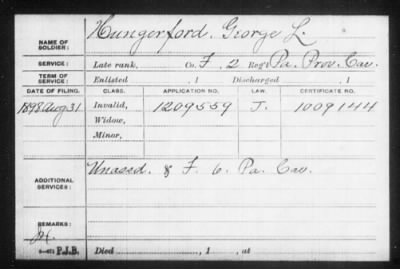 NAME OF SOLDIER: Hungerford, George L.
SERVICE: Late rank, Co. F, 2 Reg't Pa. Prov. Cav.
TERM OF SERVICE: Enlisted , 1 Discharged , 1
DATE OF FILING. CLASS. APPLICATION NO. LAW. CERTIFICATE NO.
1898 Aug 31 Invalid, 1209559 J. 1009144
Widow,
Minor,
ADDITIONAL SERVICES: Unassd. & F. 6. Pa. Cav.
REMARKS:
P.J.B. Died , 1 , at